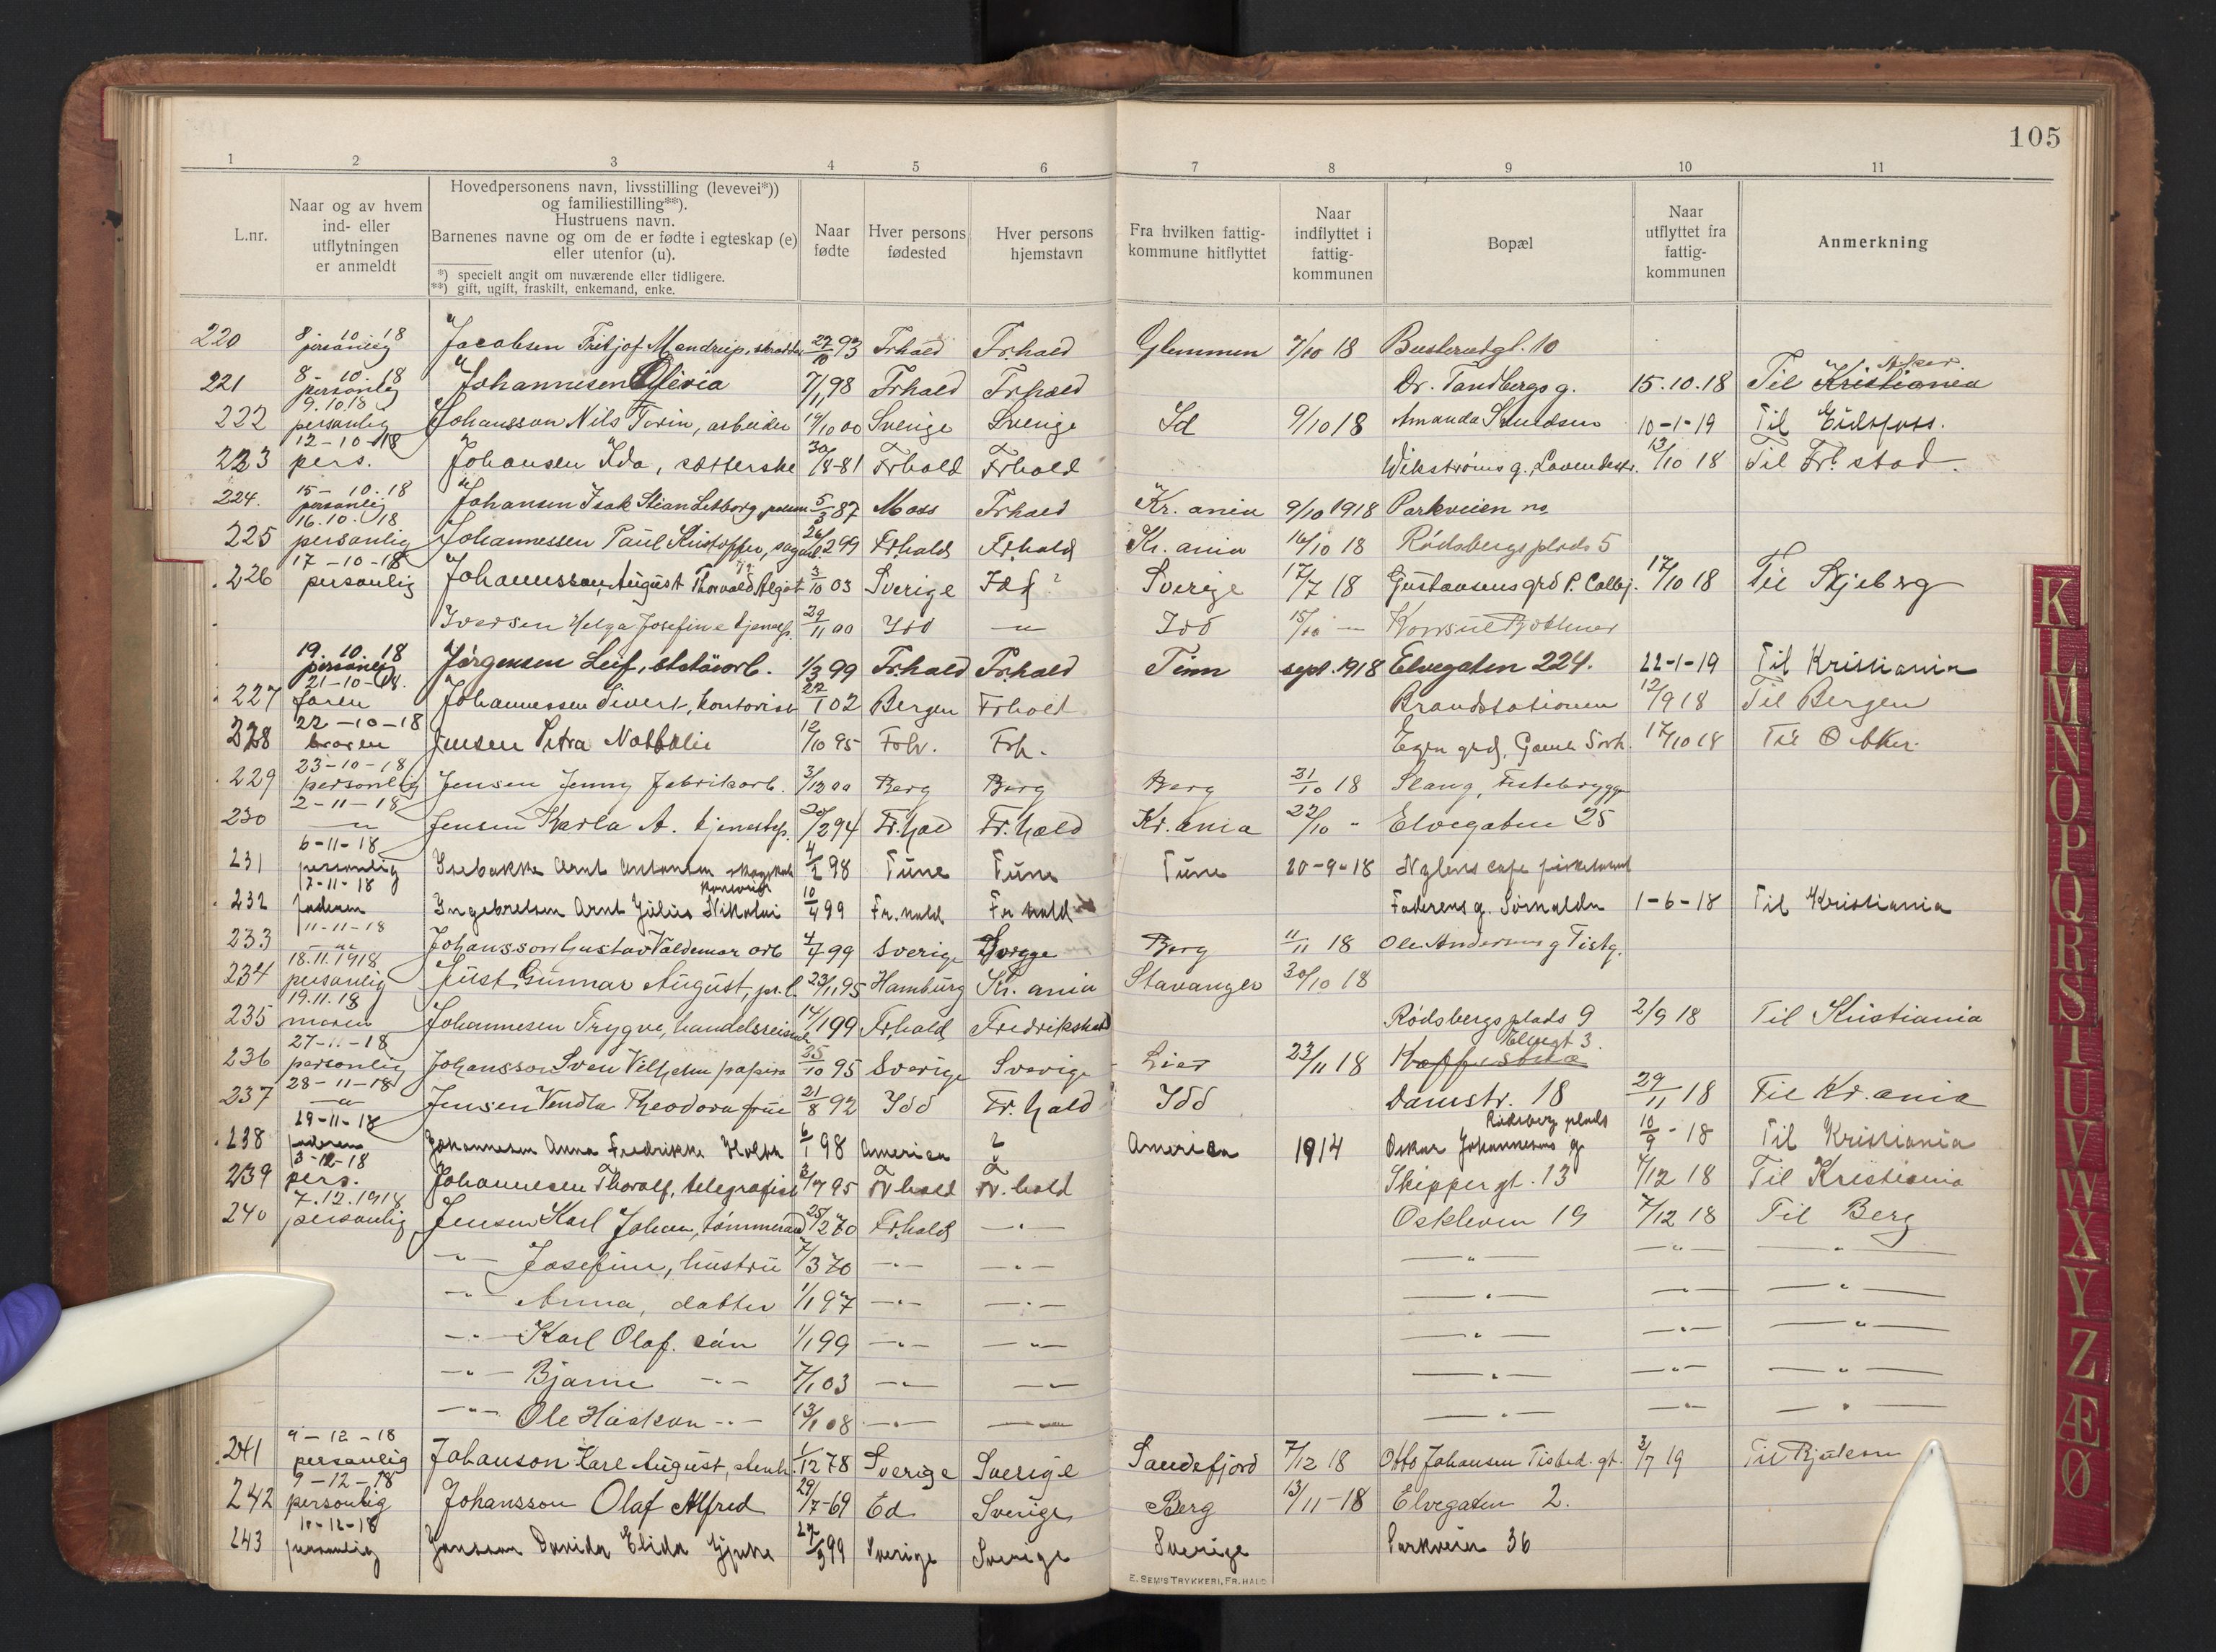 105
1 2 3 4 5 6 7 8 9 10 11
L.nr.
Naar og av hvem
ind- eller
utflytningen
er anmeldt
Hovedpersonens navn, livsstilling (levevei*))
og familiestilling**).
Hustruens navn.
Barnenes navne og om de er fødte i egteskap (e)
eller utenfor (u).
*) specielt angit om nuværende eller tidligere.
**) gift, ugift, fraskilt, enkemand, enke.
Naar
fødte
Hver persons
fødested
Hver persons
hjemstavn
Fra hvilken fattig-
kommune hitflyttet
Naar
indflyttet i
fattig-
kommunen
Bopæl
Naar
utflyttet fra
fattig-
kommunen
Anmerkning
220 8-10-18 personlig Jacobsen Fritjof Mandrup, 27/10 93 Frhald Fr.hald Glemmen 7/10 18 Busterudgt. 10
221 8-10-18 personlig Johannesen Olivia 7/1 98 Frhald Frhald Dr. Tandbergs g. 15.10.18 Til Kristiania Asker
222 9.10.18 personlig Johansson Nils Torin, arbeider 19/10 00 Sverige Sverige Id 9/10 18 Amanda 10-1-19 Til Eidsfoss.
223 12-10-18 pers. Johansen Ida, sætterske 30/8-81 Frhald Frhald Wikstrøms g. 13/10 18 Til Fr.stad.
224. 15-10-18 personlig Johansen Isak Stian 5/3 87 Moss Frhald Kr.ania 9/10 1918 Parkveien
225 16.10.18 personlig Johannessen Paul Kristoffer, 26/2 99 Frhald Frhald Kr.ania 16/10 18 Rødsbergsplads 5
226 17-10-18 personlig Johannsson, August Thorvald Algot 3/10 03 Sverige Idd? Sverige 17/7 18 Gustavsens grd P. Colbj. 17/10 18 Til Skjeberg
Iversen Helga Josefine tjenestp. 29/11 00 Idd -"- Idd 15/10 - Konsul
19.10.18 personlig Jørgensen Leif, 1/3 99 Fr.hald Fr.hald Tinn sept. 1918 Elvegaten 224. 22-1-19 Til Kristiania
227 21-10-18. faren Johannessen Sivert, kontorist 22/1 02 Bergen Frhald Brandstationen 12/9 18 Til Bergen
228 22-10-18 broren Jensen Petra Nathalie 12/10 95 Frh. Frh. Egen grd, Gamle 17/10 18 Til
229 23-10-18 personlig Jensen Jenny fabrikarb. 3/12 00 Berg Berg Berg 21/10 18 Slang,
230 2-11-18 -"- Jensen Karla A. tjenestep. 20/2 94 Fr.hald Fr.hald Kr.ania 22/10 " Elvegaten 25
231 6-11-18 personlig Isebakke Arnt 4/2 98 Tune Tune Tune 20-9-18 Nylens cafe
232 7-11-18 faderen Ingebretsen Arnt Julius Nikolai kontorist 10/4 99 Fr.hald Fr hald Faderens g. 1-6-18 Til Kristiania
233 11-11-18 -"- Johansson Gustav Valdemar arb 4/7 99 Sverige Berg 11/11 18 Ole Andersens g Tistg.
234 18.11.1918 personlig Just, Gunnar August, 23/11 95 Hamburg Kr.ania Stavanger 30/10 18
235 19.11.18 moren Johannesen Trygve, handelsreisende 14/1 99 Frhald Fredrikshald Rødsbergsplads 9 2/9 18 Til Kristiania
236 27-11-18 personlig Johansson Sven Vilhelm 25/10 95 Sverige Sverige Lier 23/11 18 Elvegt 3.
237 28-11-18 -"- Jensen Vendla Theodora frue 21/8 92 Idd Fr.hald Idd Damstr. 18 29/11 18 Til Kr.ania
238 29-11-18 faderen Johannesen Anna Fredrikke 6/1 98 Amerika ? Amerika 1914 Oskar Johannesens g. Rødsberg plads 10/9-18 Til Kristiania
239 3-12-18 pers. Johannesen Thoralf, telegrafist 3/7 95 Fr.hald Fr.hald Skippergt. 13 7/12 18 Til Kristiania
240 7.12.1918 personlig Jensen Karl Johan, tømmermand 25/2 70 Fr.hald -"- Oskleven 19 7/12 18 Til Berg
-"- Josefine, hustru 7/3 70 -"- -"- -"- -"- -"-
-"- Anna, datter 1/1 97 -"- -"- -"- -"- -"-
-"- Karl Olaf. søn 1/1 99 -"- -"- -"- -"- -"-
-"- Bjarne -"- 7/1 03 -"- -"- -"- -"- -"-
-"- Ole Haakon -"- 13/1 08 -"- -"- -"- -"- -"-
241 9-12-18 personlig Johanson Karl August, 1/12 78 Sverige Sverige Sandefjord 7/12 18 Otto Johansen Tisted.gt. 3/7 19 Til
242 9-12-18 personlig Johansson Olaf Alfred 29/7-69 Ed Sverige Berg 13/11-18 Elvegaten 2.
243 10-12-18 personlig Davida Elida 27/3 99 Sverige Sverige Sverige Parkveien 36
E. SEM'S TRYKKERI, FR.HALD
K
L
M
N
O
P
Q
R
S
T
U
V
W
X
Y
Z
Æ
Ø